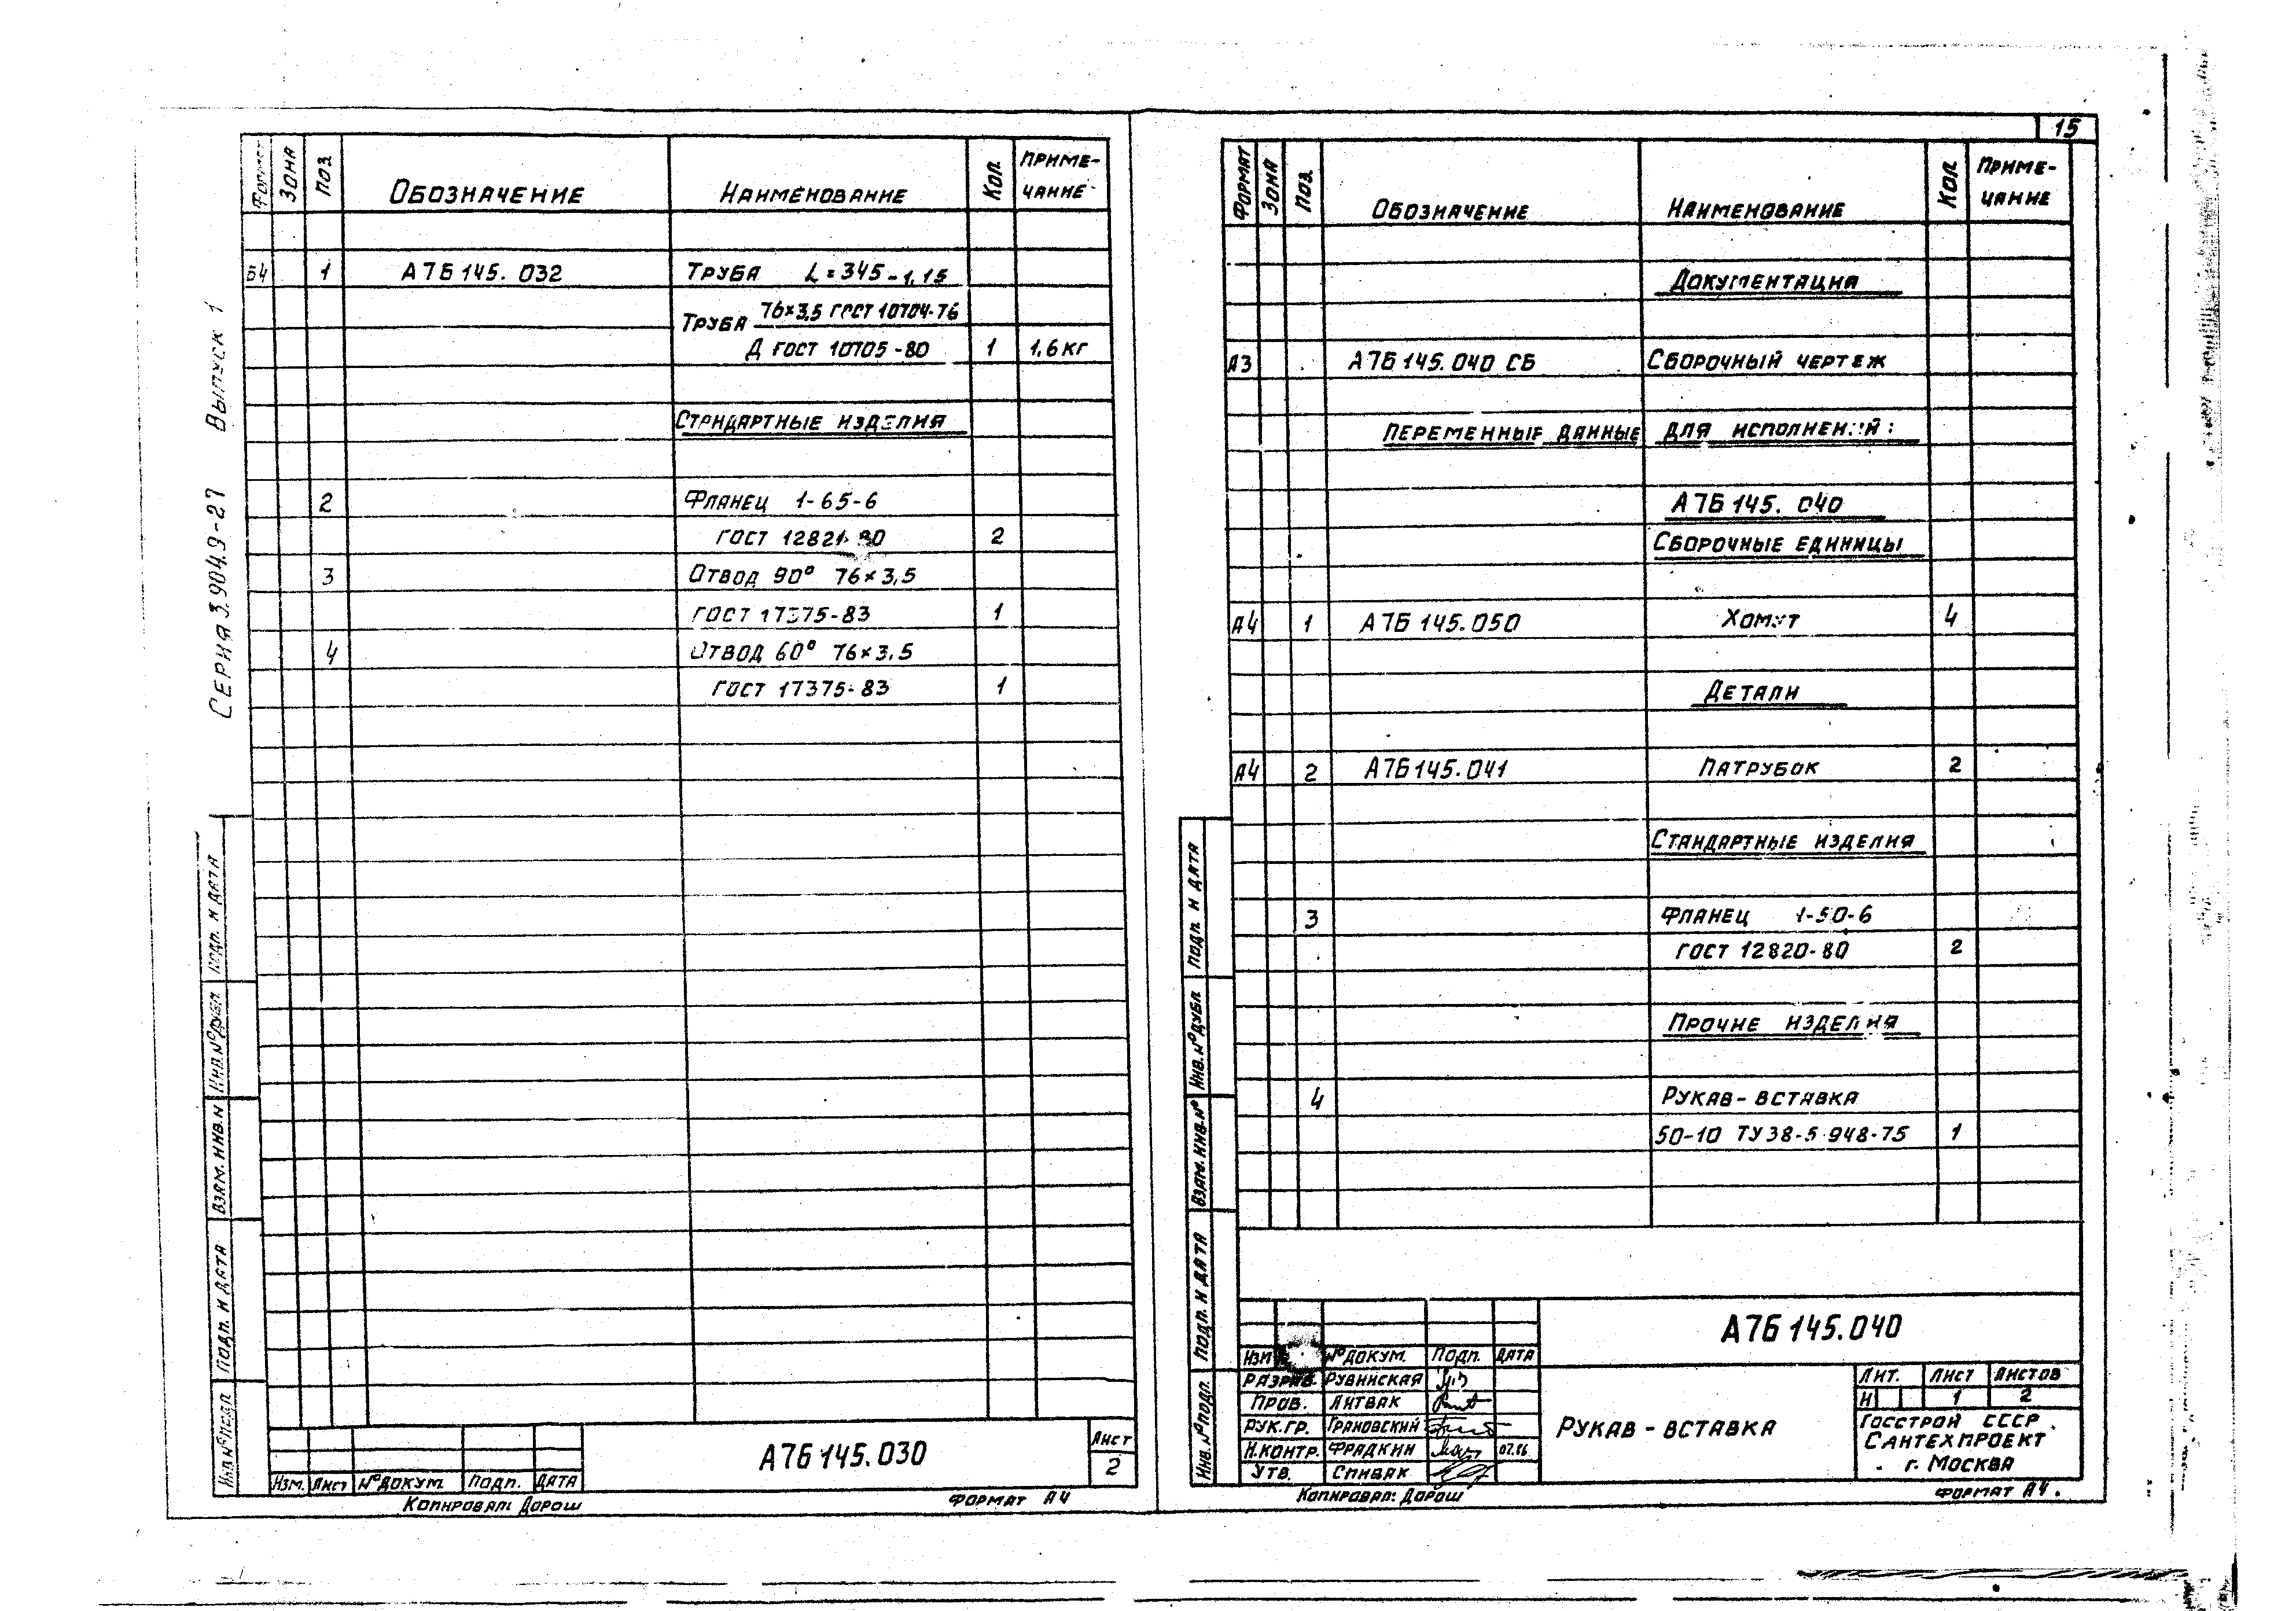 15
Серия 3.904.9-27 Выпуск 1
Формат Зона Поз. Обозначение Наименование Кол. Приме-
чание
Б4 1 А7Б 145.032 Труба L=345-1,15
Труба 76×3,5 ГОСТ 10704-76
Д ГОСТ 10705-80 1 1,6 кг
Стандартные изделия
2 Фланец 1-65-6
ГОСТ 12821-80 2
3 Отвод 90° 76×3,5
ГОСТ 17375-83 1
4 Отвод 60° 76×3,5
ГОСТ 17375-83 1
Подп. и дата
Инв. № дубл.
Взам. инв. №
Подп. и дата
Инв. № подл.
Изм. Лист № докум. Подп. Дата
А7Б 145.030
Лист
2
Копировал: Дорош
Формат А4
Формат Зона Поз. Обозначение Наименование Кол. Приме-
чание
Документация
А3 А7Б 145.040 СБ Сборочный чертеж
Переменные данные для исполнений:
А7Б 145.040
Сборочные единицы
А4 1 А7Б 145.050 Хомут 4
Детали
А4 2 А7Б 145.041 Патрубок 2
Стандартные изделия
3 Фланец 1-50-6
ГОСТ 12820-80 2
Прочие изделия
4 Рукав-вставка
50-10 ТУ 38-5.948-75 1
Подп. и дата
Инв. № дубл.
Взам. инв. №
Подп. и дата
Инв. № подл.
А7Б 145.040
Изм № докум. Подп. Дата
Разраб. Рувинская
Пров. Литвак
Рук.гр. Грановский
Н.контр. Фрадкин 07.86
Утв. Спивак
Рукав-вставка
Лит. Лист Листов
И 1 2
Госстрой СССР
Сантехпроект
г. Москва
Копировал: Дорош
Формат А4